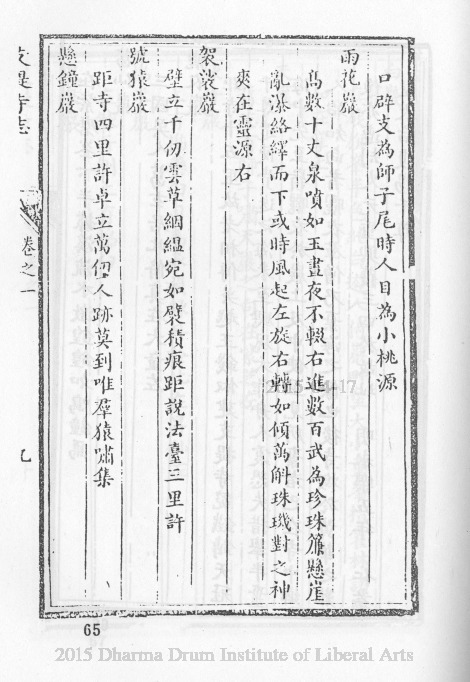 口辟支為師子尾時人目為小桃源
雨花巖
高數十丈泉噴如玉晝夜不輟右進數百武為珍珠簾懸崖
亂瀑絡繹而下或時風起左旋右轉如傾萬斛珠璣對之神
爽在靈源右
袈裟巖
壁立千仞雲草絪縕宛如襞積痕距說法臺三里許
號猿巖
距寺四里許卓立萬仞人跡莫到唯羣猿嘯集
懸鐘巖
寺志
卷之一
九
65
2015 Dharma Drum Institute of Liberal Arts